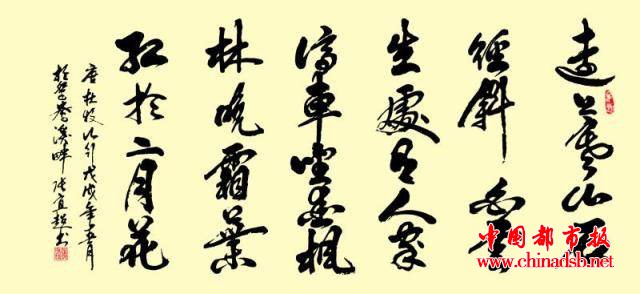 遠上寒山石
徑斜白雲
生處有人家
停車坐愛楓
林晚霜葉
紅於二月花
唐杜牧山行戊戌年月
於溪畔张宜超书
中国都市报
www.chinadsb.net